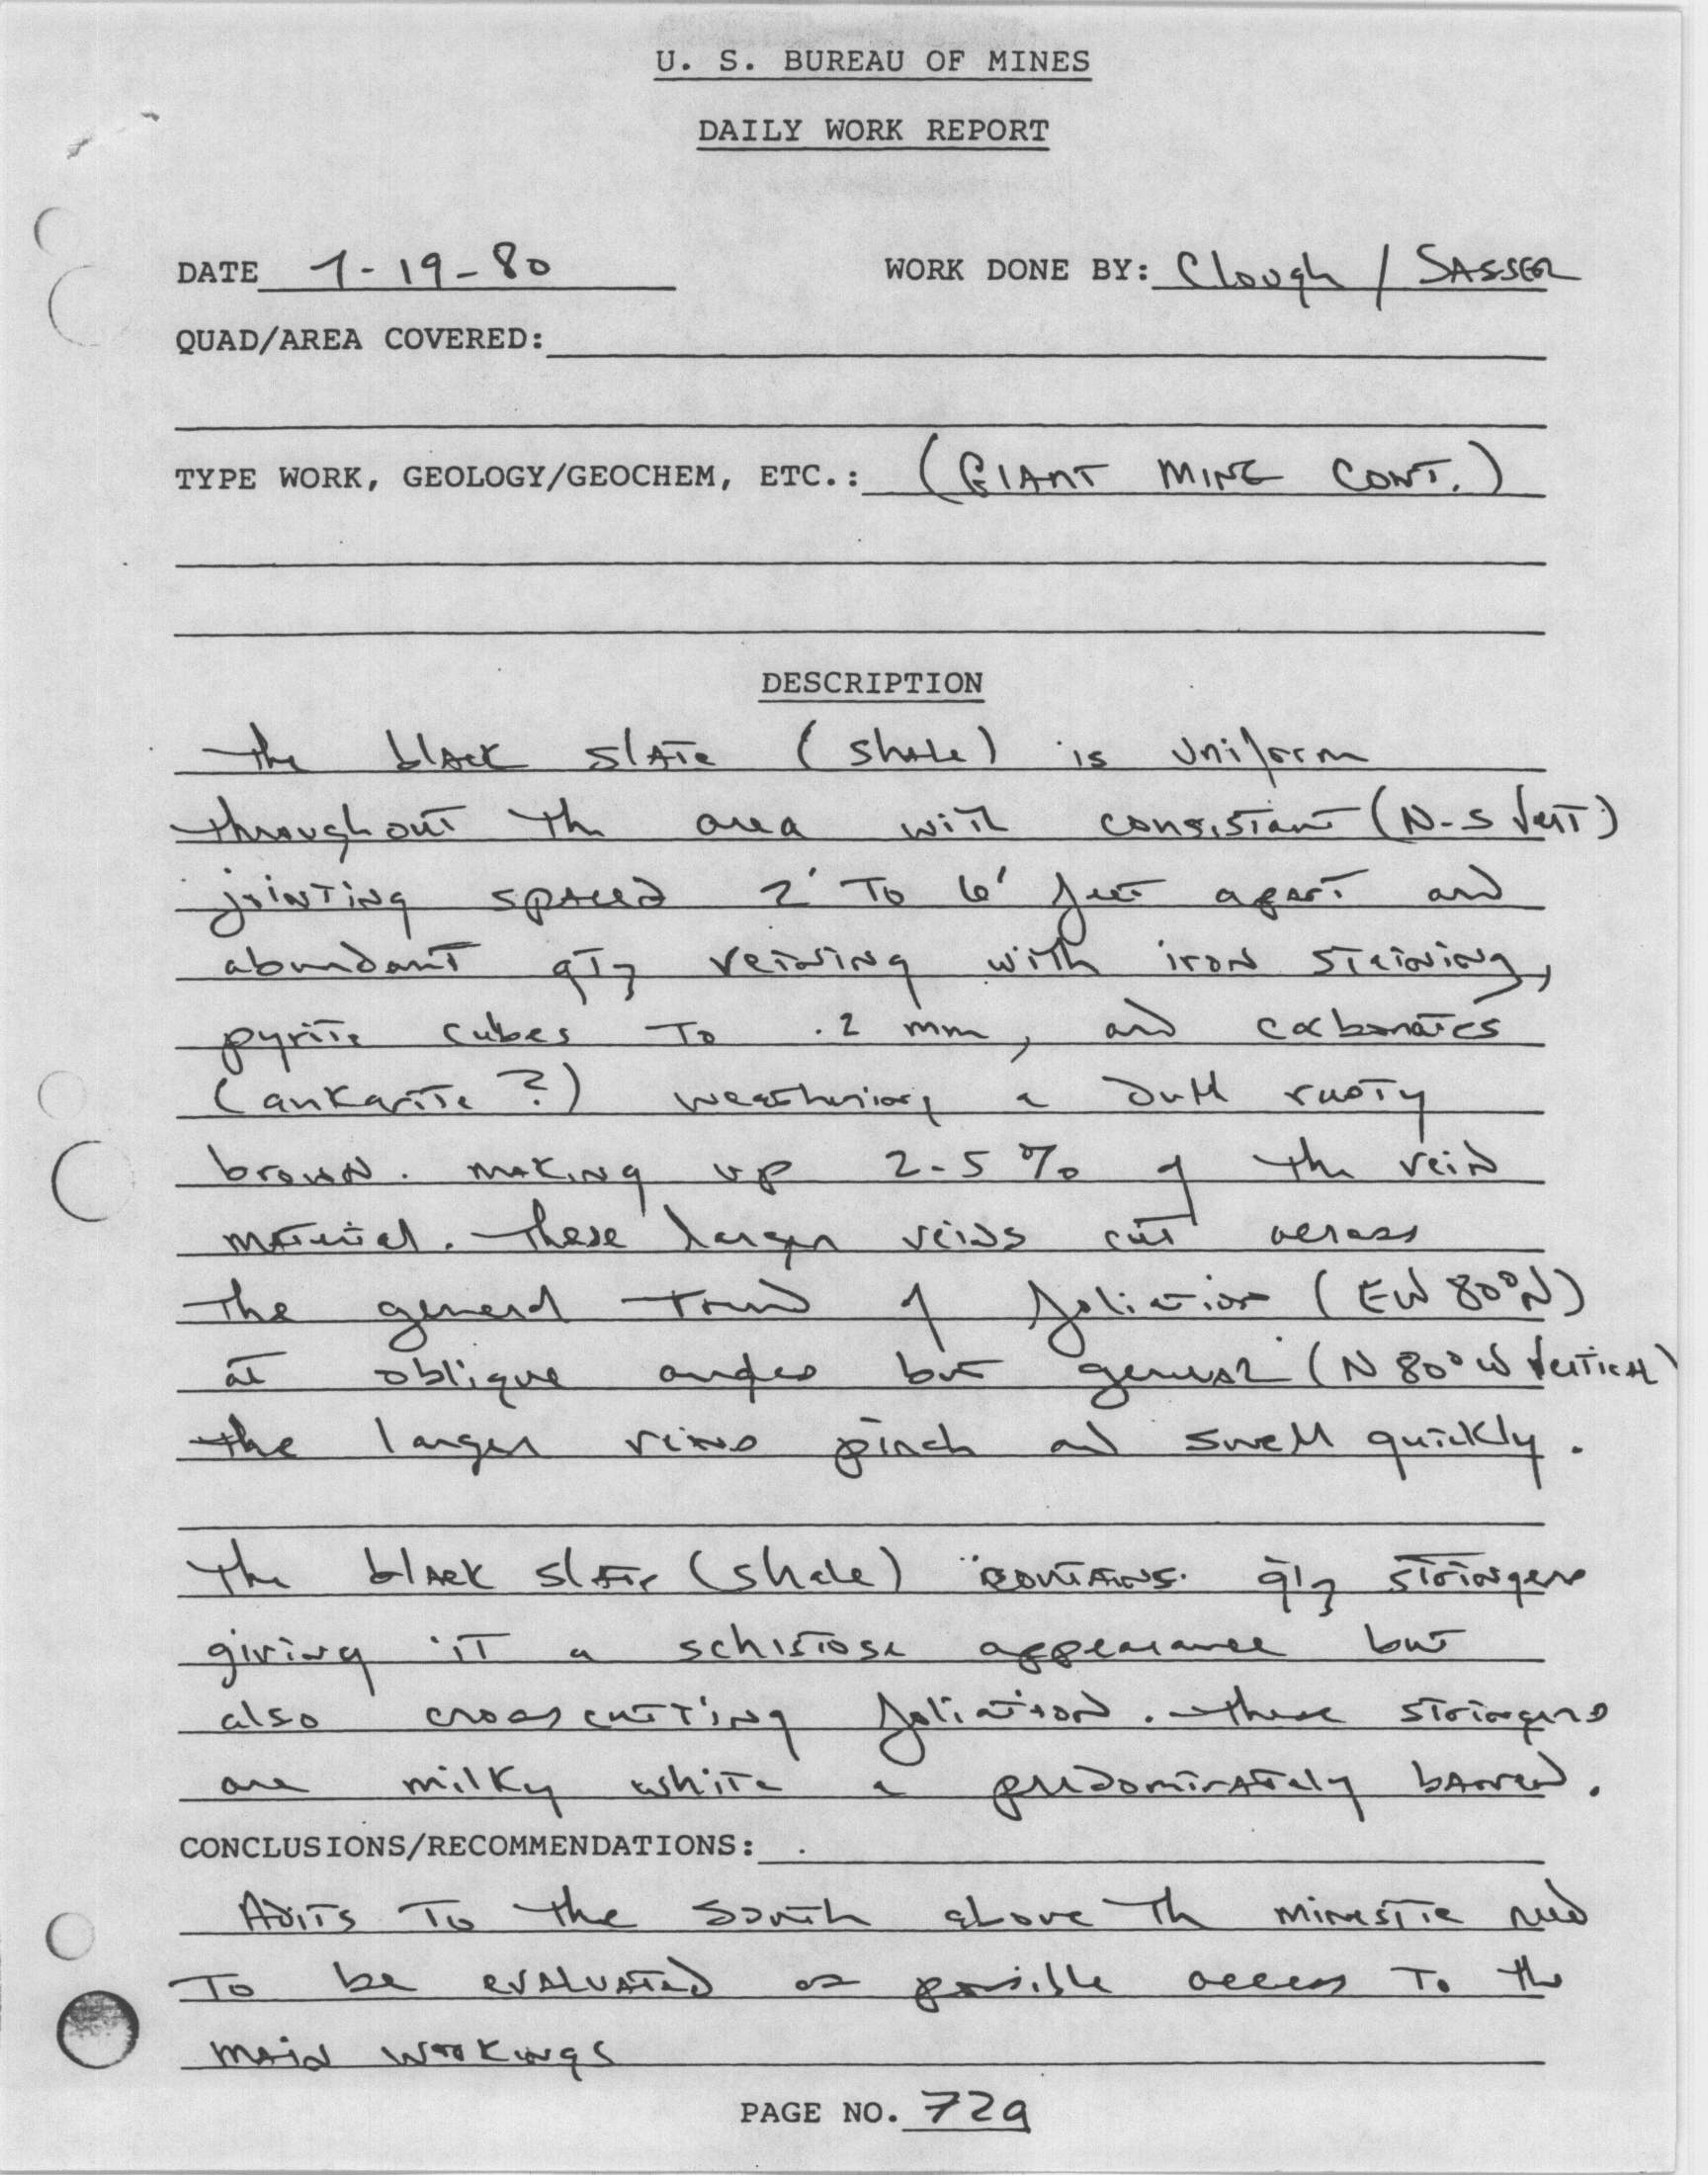 U. S. BUREAU OF MINES
DAILY WORK REPORT
DATE 7-19-80 WORK DONE BY: Clough / SASSER
QUAD/AREA COVERED:
TYPE WORK, GEOLOGY/GEOCHEM, ETC.: (GIANT MINE CONT.)
DESCRIPTION
The black slate (shale) is uniform
throughout the area with consistant (N-S Vert.)
jointing spaced 2' to 6' feet apart and
abundant qtz veining with iron staining,
pyrite cubes to .2 mm, and carbonates
(ankarite ?) weathering a dull rusty
brown. making up 2-5% of the vein
material. These larger veins cut across
the general trend of foliation (EW 80°N)
at oblique angles but general (N 80° W Vertical)
the larger veins pinch and swell quickly.
The black slate (shale) contains qtz stringers
giving it a schistose appearance but
also crosscutting foliation. These stringers
are milky white & predominately barren.
CONCLUSIONS/RECOMMENDATIONS:
Adits to the South above the minesite need
to be evaluated as possible access to the
main workings
PAGE NO. 72a